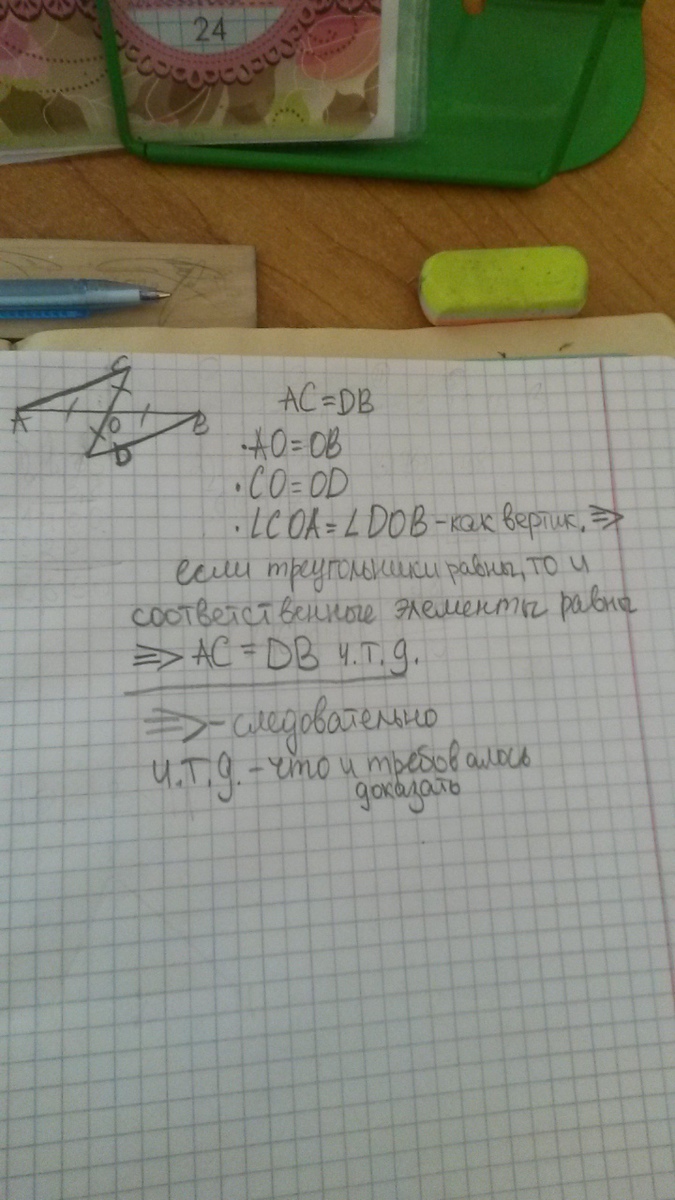 24
C
A
O
B
D
AC=DB
·AO=OB
·CO=OD
·∠COA=∠DOB-как вертик. ⇒
если треугольники равны, то и
соответственные элементы равны
⇒ AC=DB ч.т.д.
⇒-следовательно
ч.т.д.-что и требовалось
доказать